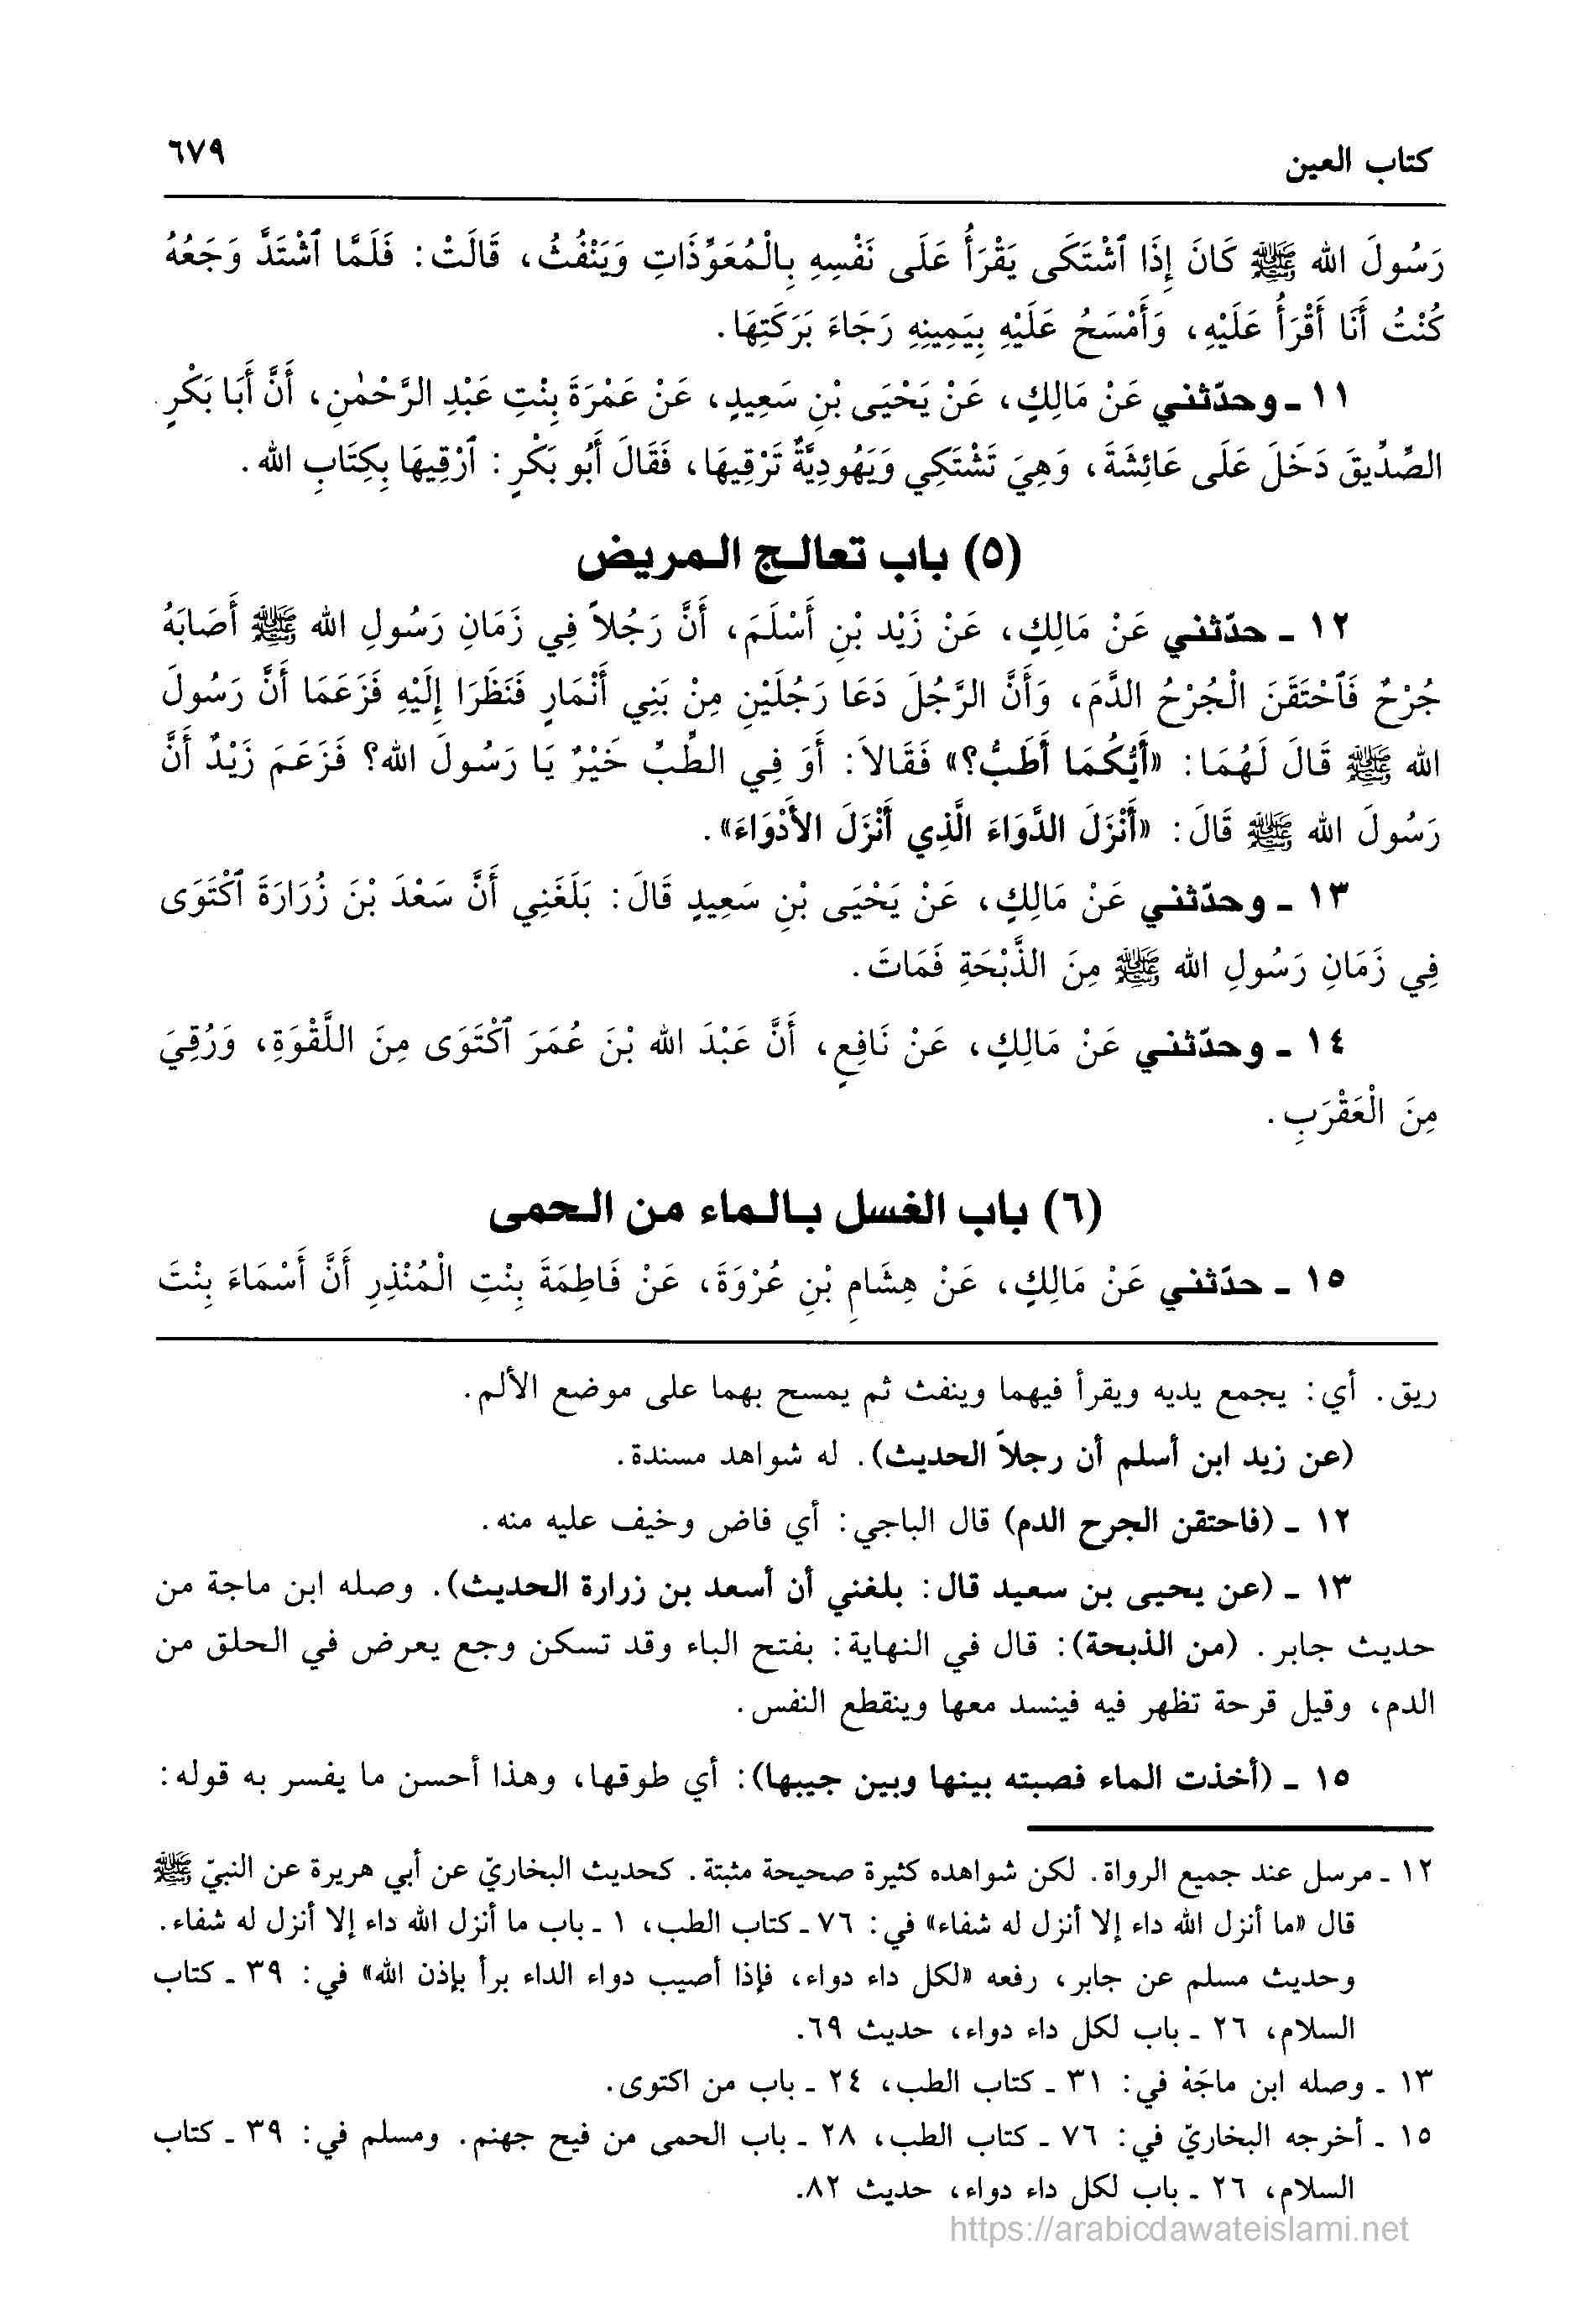 كتاب العين ٦٧٩
رَسُولَ الله ﷺ كَانَ إِذَا ٱشْتَكَى يَقْرَأُ عَلَى نَفْسِهِ بِالْمُعَوِّذَاتِ وَيَنْفُثُ، قَالَتْ: فَلَمَّا ٱشْتَدَّ وَجَعُهُ
كُنْتُ أَنَا أَقْرَأُ عَلَيْهِ، وَأَمْسَحُ عَلَيْهِ بِيَمِينِهِ رَجَاءَ بَرَكَتِهَا.
١١ ـ وحدّثني عَنْ مَالِكٍ، عَنْ يَحْيَى بْنِ سَعِيدٍ، عَنْ عَمْرَةَ بِنْتِ عَبْدِ الرَّحْمٰنِ، أَنَّ أَبَا بَكْرٍ
الصِّدِّيقَ دَخَلَ عَلَى عَائِشَةَ، وَهِيَ تَشْتَكِي وَيَهُودِيَّةٌ تَرْقِيهَا، فَقَالَ أَبُو بَكْرٍ: ٱرْقِيهَا بِكِتَابِ الله.
(٥) باب تعالج المريض
١٢ ـ حدّثني عَنْ مَالِكٍ، عَنْ زَيْد بْنِ أَسْلَمَ، أَنَّ رَجُلاً فِي زَمَانِ رَسُولِ الله ﷺ أَصَابَهُ
جُرْحٌ فَٱحْتَقَنَ الْجُرْحُ الدَّمَ، وَأَنَّ الرَّجُلَ دَعَا رَجُلَيْنِ مِنْ بَنِي أَنْمَارٍ فَنَظَرَا إِلَيْهِ فَزَعَمَا أَنَّ رَسُولَ
الله ﷺ قَالَ لَهُمَا: «أَيُّكُمَا أَطَبُّ؟» فَقَالاَ: أَوَ فِي الطِّبِّ خَيْرٌ يَا رَسُولَ الله؟ فَزَعَمَ زَيْدٌ أَنَّ
رَسُولَ الله ﷺ قَالَ: «أَنْزَلَ الدَّوَاءَ الَّذِي أَنْزَلَ الأَدْوَاءَ».
١٣ ـ وحدّثني عَنْ مَالِكٍ، عَنْ يَحْيَى بْنِ سَعِيدٍ قَالَ: بَلَغَنِي أَنَّ سَعْدَ بْنَ زُرَارَةَ ٱكْتَوَى
فِي زَمَانِ رَسُولِ الله ﷺ مِنَ الذَّبْحَةِ فَمَاتَ.
١٤ ـ وحدّثني عَنْ مَالِكٍ، عَنْ نَافِعٍ، أَنَّ عَبْدَ الله بْنَ عُمَرَ ٱكْتَوَى مِنَ اللَّقْوَةِ، وَرُقِيَ
مِنَ الْعَقْرَبِ.
(٦) باب الغسل بالماء من الحمى
١٥ ـ حدّثني عَنْ مَالِكٍ، عَنْ هِشَامِ بْنِ عُرْوَةَ، عَنْ فَاطِمَةَ بِنْتِ الْمُنْذِرِ أَنَّ أَسْمَاءَ بِنْتَ
ريق. أي: يجمع يديه ويقرأ فيهما وينفث ثم يمسح بهما على موضع الألم.
(عن زيد ابن أسلم أن رجلاً الحديث). له شواهد مسندة.
١٢ ـ (فاحتقن الجرح الدم) قال الباجي: أي فاض وخيف عليه منه.
١٣ ـ (عن يحيى بن سعيد قال: بلغني أن أسعد بن زرارة الحديث). وصله ابن ماجة من
حديث جابر. (من الذبحة): قال في النهاية: بفتح الباء وقد تسكن وجع يعرض في الحلق من
الدم، وقيل قرحة تظهر فيه فينسد معها وينقطع النفس.
١٥ ـ (أخذت الماء فصبته بينها وبين جيبها): أي طوقها، وهذا أحسن ما يفسر به قوله:
١٢ ـ مرسل عند جميع الرواة. لكن شواهده كثيرة صحيحة مثبتة. كحديث البخاريّ عن أبي هريرة عن النبيّ ﷺ
قال «ما أنزل الله داء إلا أنزل له شفاء» في: ٧٦ ـ كتاب الطب، ١ ـ باب ما أنزل الله داء إلا أنزل له شفاء.
وحديث مسلم عن جابر، رفعه «لكل داء دواء، فإذا أصيب دواء الداء برأ بإذن الله» في: ٣٩ ـ كتاب
السلام، ٢٦ ـ باب لكل داء دواء، حديث ٦٩.
١٣ ـ وصله ابن ماجَهْ في: ٣١ ـ كتاب الطب، ٢٤ ـ باب من اكتوى.
١٥ ـ أخرجه البخاريّ في: ٧٦ ـ كتاب الطب، ٢٨ ـ باب الحمى من فيح جهنم. ومسلم في: ٣٩ ـ كتاب
السلام، ٢٦ ـ باب لكل داء دواء، حديث ٨٢.
https://arabicdawateislami.net